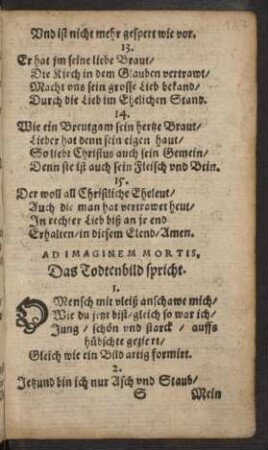 Vnd ist nicht mehr gespert wie vor.
13.
Er hat jm seine liebe Braut/
Die Kirch in dem Glauben vertrawt/
Macht vns sein grosse Lieb bekand/
Durch die Lieb im Ehelichen Stand.
14.
Wie ein Breutgam sein hertze Braut/
Lieber hat denn sein eigen haut/
So liebt Christus auch sein Gemein/
Denn sie ist auch sein Fleisch vnd Bein.
15.
Der woll all Christliche Eheleut/
Auch die man hat vertrawet heut/
In rechter Lieb biß an jr end
Erhalten/ in diesem Elend/ Amen.
AD IMAGINEM MORTIS.
Das Todtenbild spricht.
1.
O Mensch mit vleiß anschawe mich/
Wie du jetzt bist/ gleich so war ich/
Jung/ schön vnd starck/ auffs
hübschte geziert/
Gleich wie ein Bild artig formirt.
2.
Jetzund bin ich nur Asch vnd Staub/
S Mein